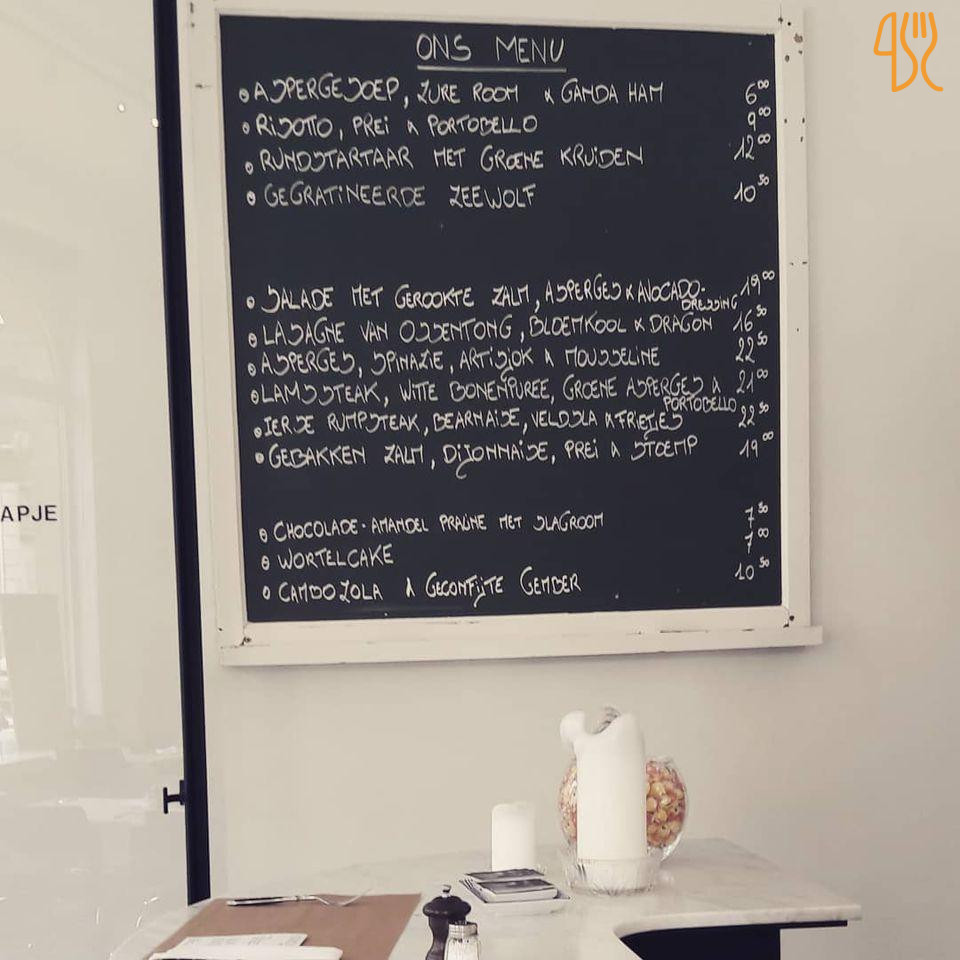 ONS MENU
ASPERGESOEP, ZURE ROOM & GANDA HAM 6⁰⁰
RISOTTO, PREI & PORTOBELLO 9⁰⁰
RUNDSTARTAAR MET GROENE KRUIDEN 12⁰⁰
GEGRATINEERDE ZEEWOLF 10⁵⁰
SALADE MET GEROOKTE ZALM, ASPERGES & AVOCADO- 19⁰⁰
DRESSING
LASAGNE VAN OSSENTONG, BLOEMKOOL & DRAGON 16⁵⁰
ASPERGES, SPINAZIE, ARTISJOK & MOUSSELINE 22⁵⁰
LAMSSTEAK, WITTE BONENPUREE, GROENE ASPERGES & 21⁰⁰
PORTOBELLO
IERSE RUMPSTEAK, BEARNAISE, VELDSLA & FRIETJES 22⁵⁰
GEBAKKEN ZALM, DIJONNAISE, PREI & STOEMP 19⁰⁰
CHOCOLADE-AMANDEL PRALINE MET SLAGROOM 7⁵⁰
WORTELCAKE 7⁰⁰
CAMBOZOLA & GECONFIJTE GEMBER 10⁵⁰
APJE